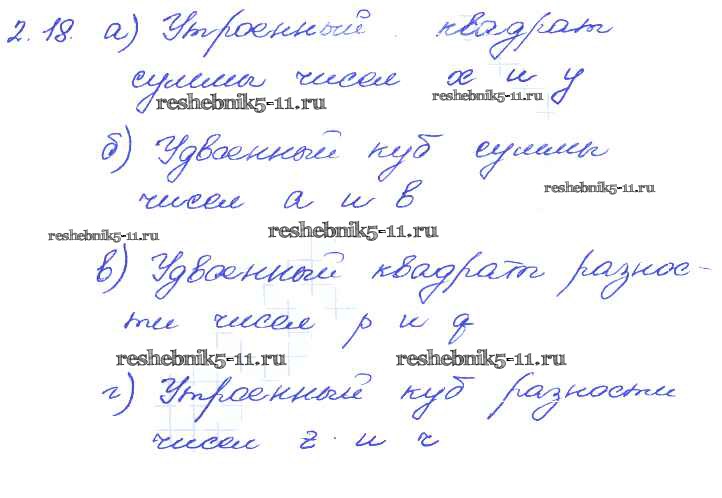 2.18. а) Утроенный квадрат
суммы чисел x и y
reshebnik5-11.ru reshebnik5-11.ru
б) Удвоенный куб суммы
чисел a и b
reshebnik5-11.ru
reshebnik5-11.ru reshebnik5-11.ru
в) Удвоенный квадрат разнос-
ти чисел p и q
reshebnik5-11.ru reshebnik5-11.ru
г) Утроенный куб разности
чисел z и r